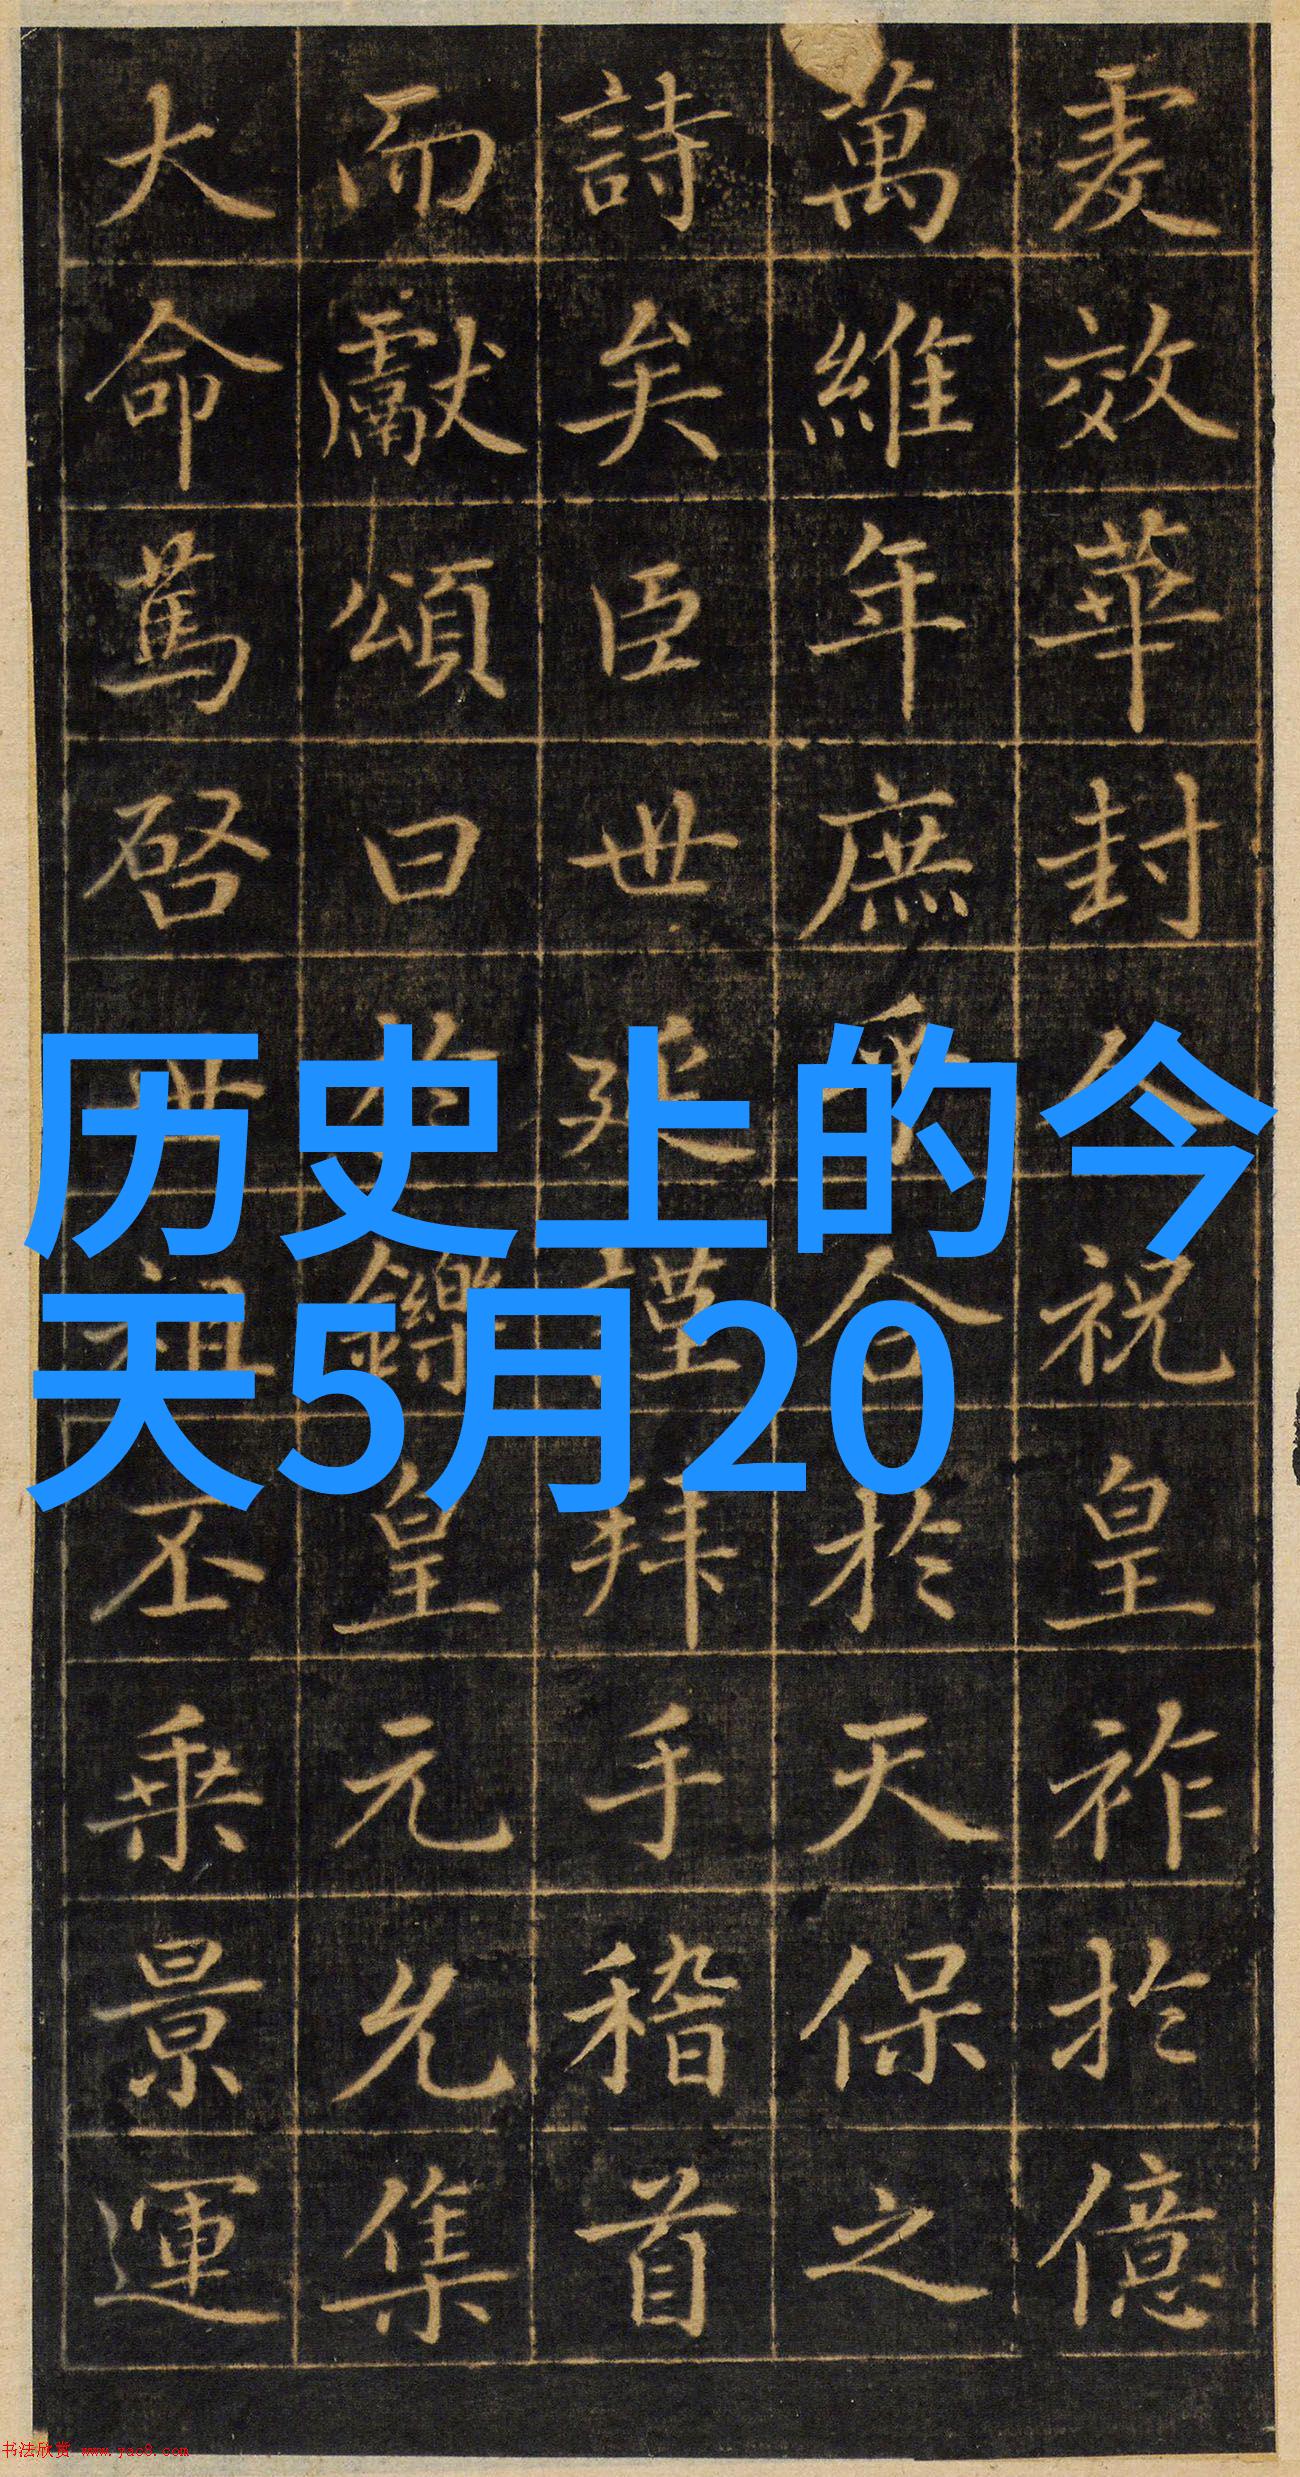 历史上的今
天5月20
虔效華封祝皇祚於億
萬維年庶乎合於天保之
詩矣臣世延謹拜手稽首
而獻頌曰於鑠皇元允集
大命篤啓世祖丕乘景運
书法欣赏 www.yac8.com